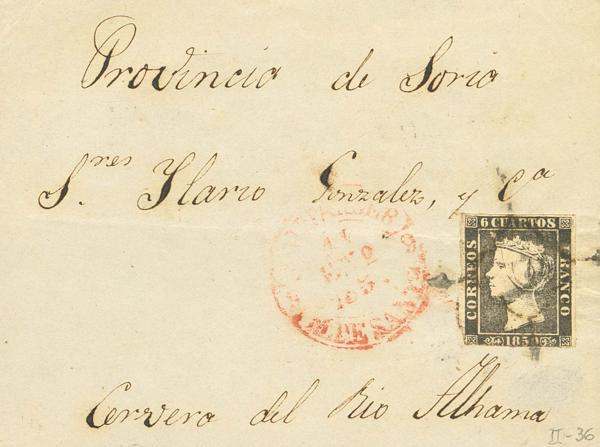 Provincia de Soria
S.res Ylario Gonzalez, y C.a
6 CUARTOS
CORREOS
FRANCO
1850
Cervera del Rio Alhama
II-36